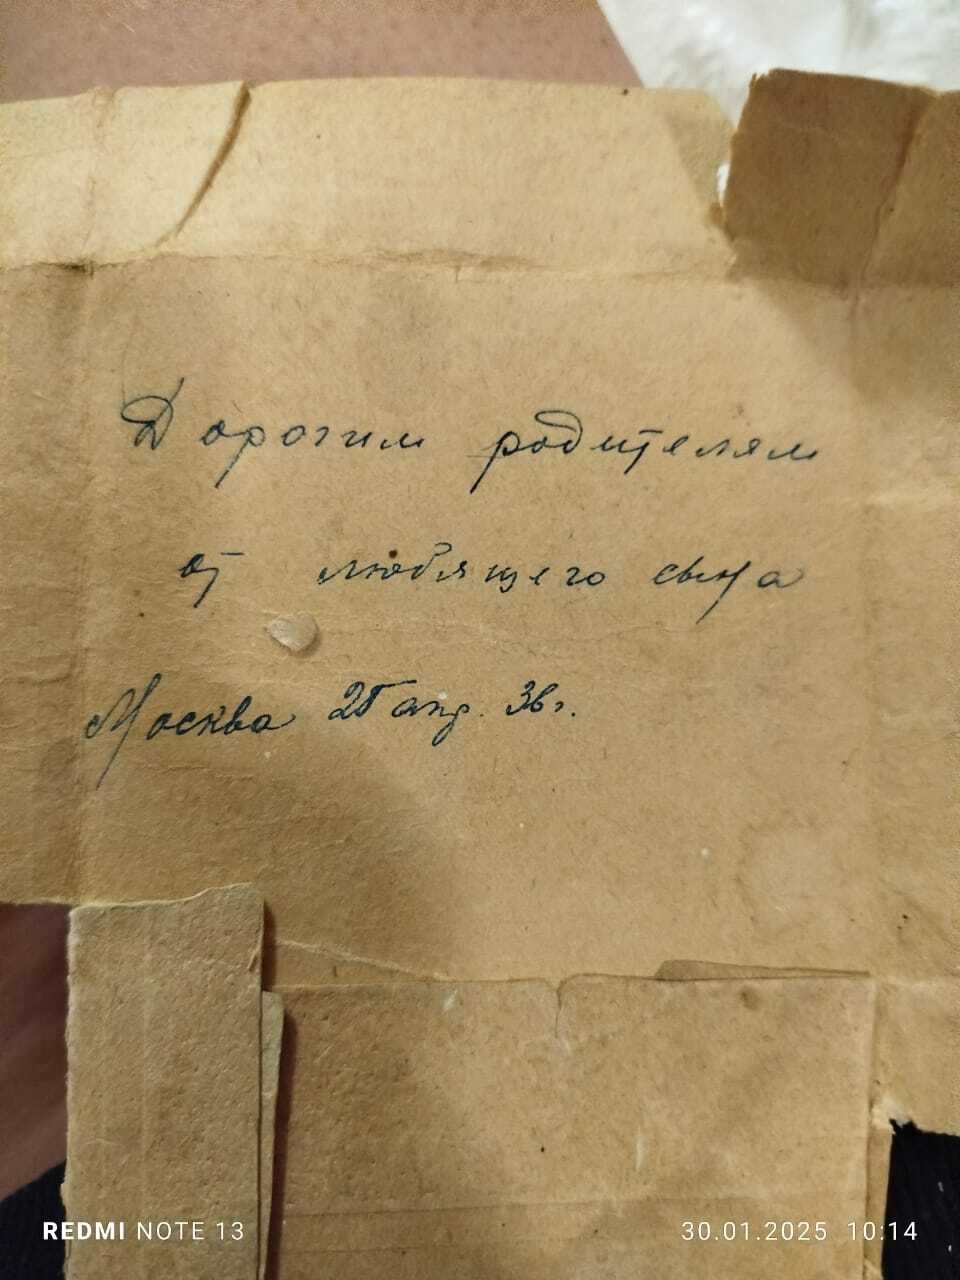 Дорогим родителям
от любящего сына
Москва 25 апр. 36 г.
REDMI NOTE 13
30.01.2025 10:14